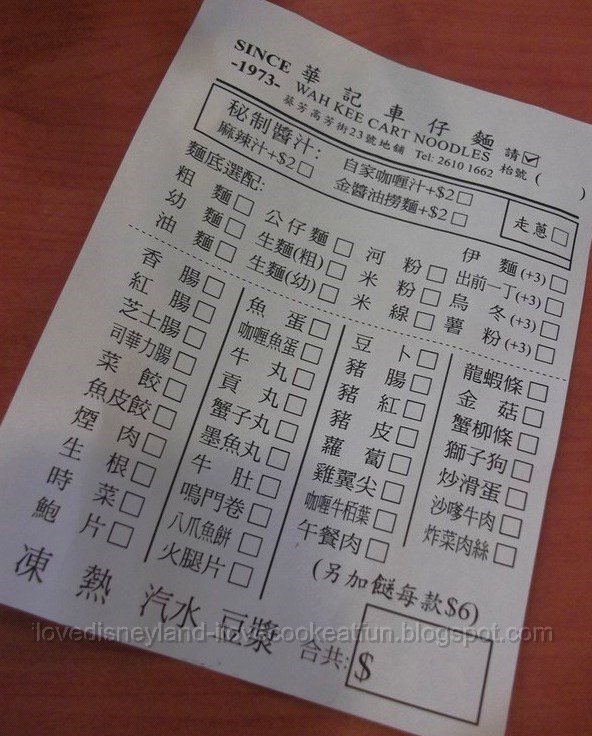 SINCE 華記車仔麵
-1973- WAH KEE CART NOODLES
葵芳高芳街23號地舖 Tel: 2610 1662
請☑枱號 ( )
秘制醬汁: 自家咖喱汁+$2□
麻辣汁+$2□ 金醬油撈麵+$2□
走蔥□
麵底選配:
粗麵□ 公仔麵□ 河粉□ 伊麵(+3)□
幼麵□ 生麵(粗)□ 米粉□ 出前一丁(+3)□
油麵□ 生麵(幼)□ 米線□ 烏冬(+3)□
薯粉(+3)□
香腸□ 魚蛋□ 豆卜□ 龍蝦條□
紅腸□ 咖喱魚蛋□ 豬腸□ 金菇□
芝士腸□ 牛丸□ 豬紅□ 蟹柳條□
司華力腸□ 貢丸□ 豬皮□ 獅子狗□
菜餃□ 蟹子丸□ 蘿蔔□ 炒滑蛋□
魚皮餃□ 墨魚丸□ 雞翼尖□ 沙嗲牛肉□
煙肉□ 牛肚□ 咖喱牛栢葉□ 炸菜肉絲□
生根□ 鳴門卷□ 午餐肉□
時菜□ 八爪魚餅□
鮑片□ 火腿片□
(另加餸每款$6)
凍 熱 汽水 豆漿
合共: $
ilovedisneyland-ilovecookeatfun.blogspot.com